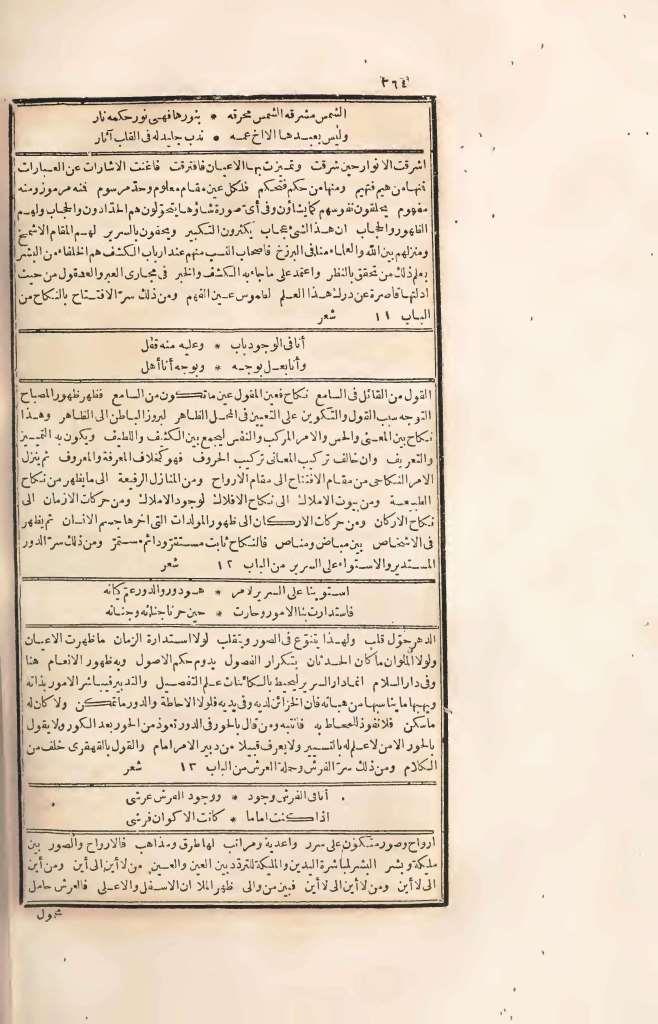 ٣٦٤
الشمس مشرقه الشمس محرقه * بنورها فهى نور حكمه نار
وليس يعبدها الا اخ عمه * ندب جليد له فى القلب آثار
اشرقت الانوار حين شرقت وتميزت بها الاعيان فافترقت فاغنت الاشارات عن العبارات
فمنها من هيم فتهيم ومنها من حكم فتحكم فلكل عين مقام معلوم وحد مرسوم فنه مرموز ومنه
مفهوم يخلقون نفوسهم كما يشاؤن وفى أى صورة شاؤها يتحولون هم الحدادون والحجاب ولهم
الظهور والحجاب ان هذا لشئ عجاب يكثرون التكبير ويحفون بالسرير لهم المقام الاشمخ
ومنزلهم بين الله والعلماء منا فى البرزخ فاصحاب النسب منهم عند ارباب الكشف هم الخلفاء من البشر
يعلم ذلك من تحقق بالنظر واعتمد على ما جاء به الكشف والخبر فى مجارى العبر والعقول من حيث
ادلتها قاصرة عن درك هذا العلم لغموض عين الفهم ومن ذلك سر الافتتاح بالنكاح من
الباب ١١ شعر
أنا فى الوجود باب * وعليه منه قفل
وأنا بعل بوجه * وبوجه أنا أهل
القول من القائل فى السامع نكاح فعين المقول عين ما تكون من السامع فظهر ظهور المصباح
التوجه سبب القول والتكوين على التعيين فى المحل الظاهر لبروز الباطن الى الظاهر وهذا
نكاح بين المعنى والحس والامر المركب والنفس ليجمع بين الكثيف واللطيف ويكون به التمييز
والتعريف وان خالف تركيب المعانى تركيب الحروف فهو كخلاف المعرفة والمعروف ثم ينزل
الامر النكاحى من مقام الافتتاح الى مقام الارواح ومن المنازل الرفيعة الى ما يظهر من نكاح
الطبيعة ومن بيوت الاملاك الى نكاح الافلاك لوجود الاملاك ومن حركات الازمان الى
نكاح الاركان ومن حركات الاركان الى ظهور المولدات التى اخرها جسم الانسان ثم يظهر
فى الاشخاص بين مباض ومناص فالنكاح ثابت مستقر ودائم مستمر ومن ذلك سر الدور
المستدير والاستواء على السرير من الباب ١٢ شعر
استوينا على السرير لامر * هو دور والدور عم كيانه
فاستدارت بنا الامور وحارت * حين حرنا جنانه وجنانه
الدهر حول قلب ولهذا يتنوع فى الصور ويتقلب لولا استدارة الزمان ما ظهرت الاعيان
ولولا الملوان ما كان الحدثان بتكرار الفصول يدوم حكم الاصول وبه ظهور الانعام هنا
وفى دار السلام انما دار السرير ليحيط بالكائنات علم التفصيل والتدبير فيباشر الامور بذاته
ويهبها ما يناسبها من هباته فان الخزائن لديه وفى يديه فلولا الاحاطة والدور ما تمكن ولا كان له
ما سكن فلا نفوذ للمحاط به فانتبه ومن قال بالحور فى الدور تعوذ من الحور بعد الكور ولا يقول
بالحور الا من لا علم له بالتسيير ولا يعرف قبيلا من دبير الامر امام والقول بالقهقرى خلف من
الكلام ومن ذلك سر الفرش وحملة العرش من الباب ١٣ شعر
أنا فى الفرش وجود * ووجود العرش عرشى
اذا كنت اماما * كانت الاكوان فرشى
ارواح وصور متكون على سرر واغذية ومراتب لها طرق ومذاهب فالارواح والصور بين
مليكة وبشر البشر لمباشرة اليدين والمليكة للتردد بين العين والعين من لا أين الى أين ومن أين
الى لا أين ومن لا أين الى لا أين فبين من والى ظهر الملا ان الاسفل والاعلى فالعرش حامل
محمول